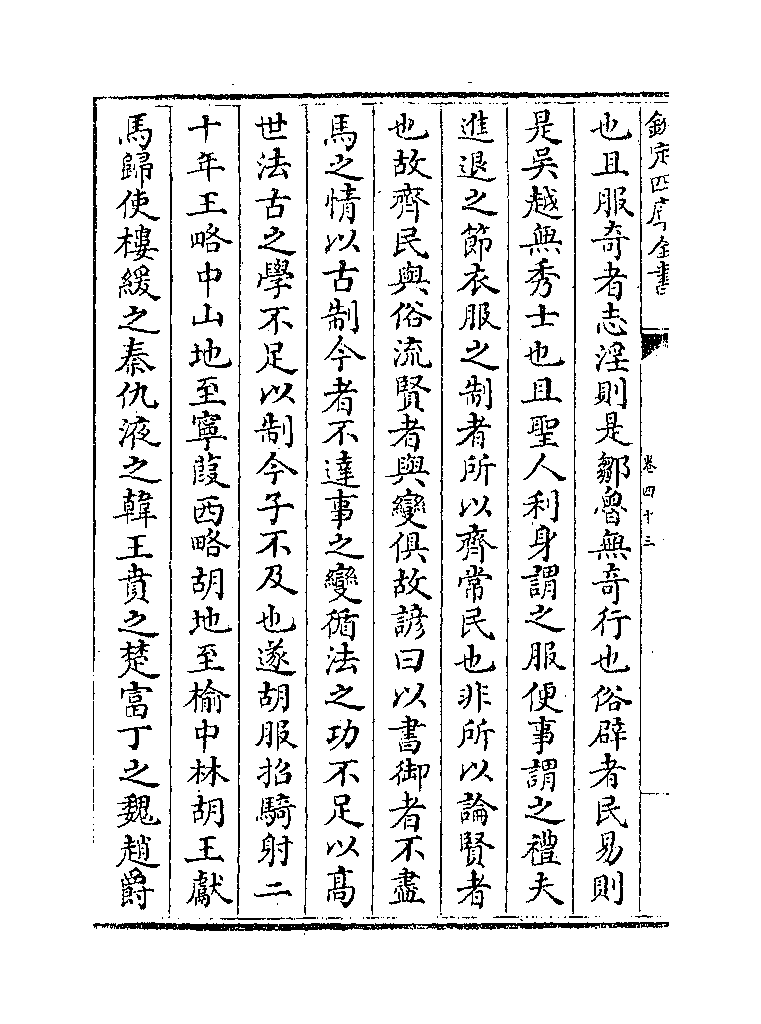 欽定四庫全書
卷四十三
也且服奇者志淫則是鄒魯無奇行也俗辟者民易則
是吳越無秀士也且聖人利身謂之服便事謂之禮夫
進退之節衣服之制者所以齊常民也非所以論賢者
也故齊民與俗流賢者與變俱故諺曰以書御者不盡
馬之情以古制今者不達事之變循法之功不足以髙
世法古之學不足以制今子不及也遂胡服招騎射二
十年王略中山地至寧葭西略胡地至榆中林胡王獻
馬歸使樓緩之秦仇液之韓王賁之楚富丁之魏趙爵